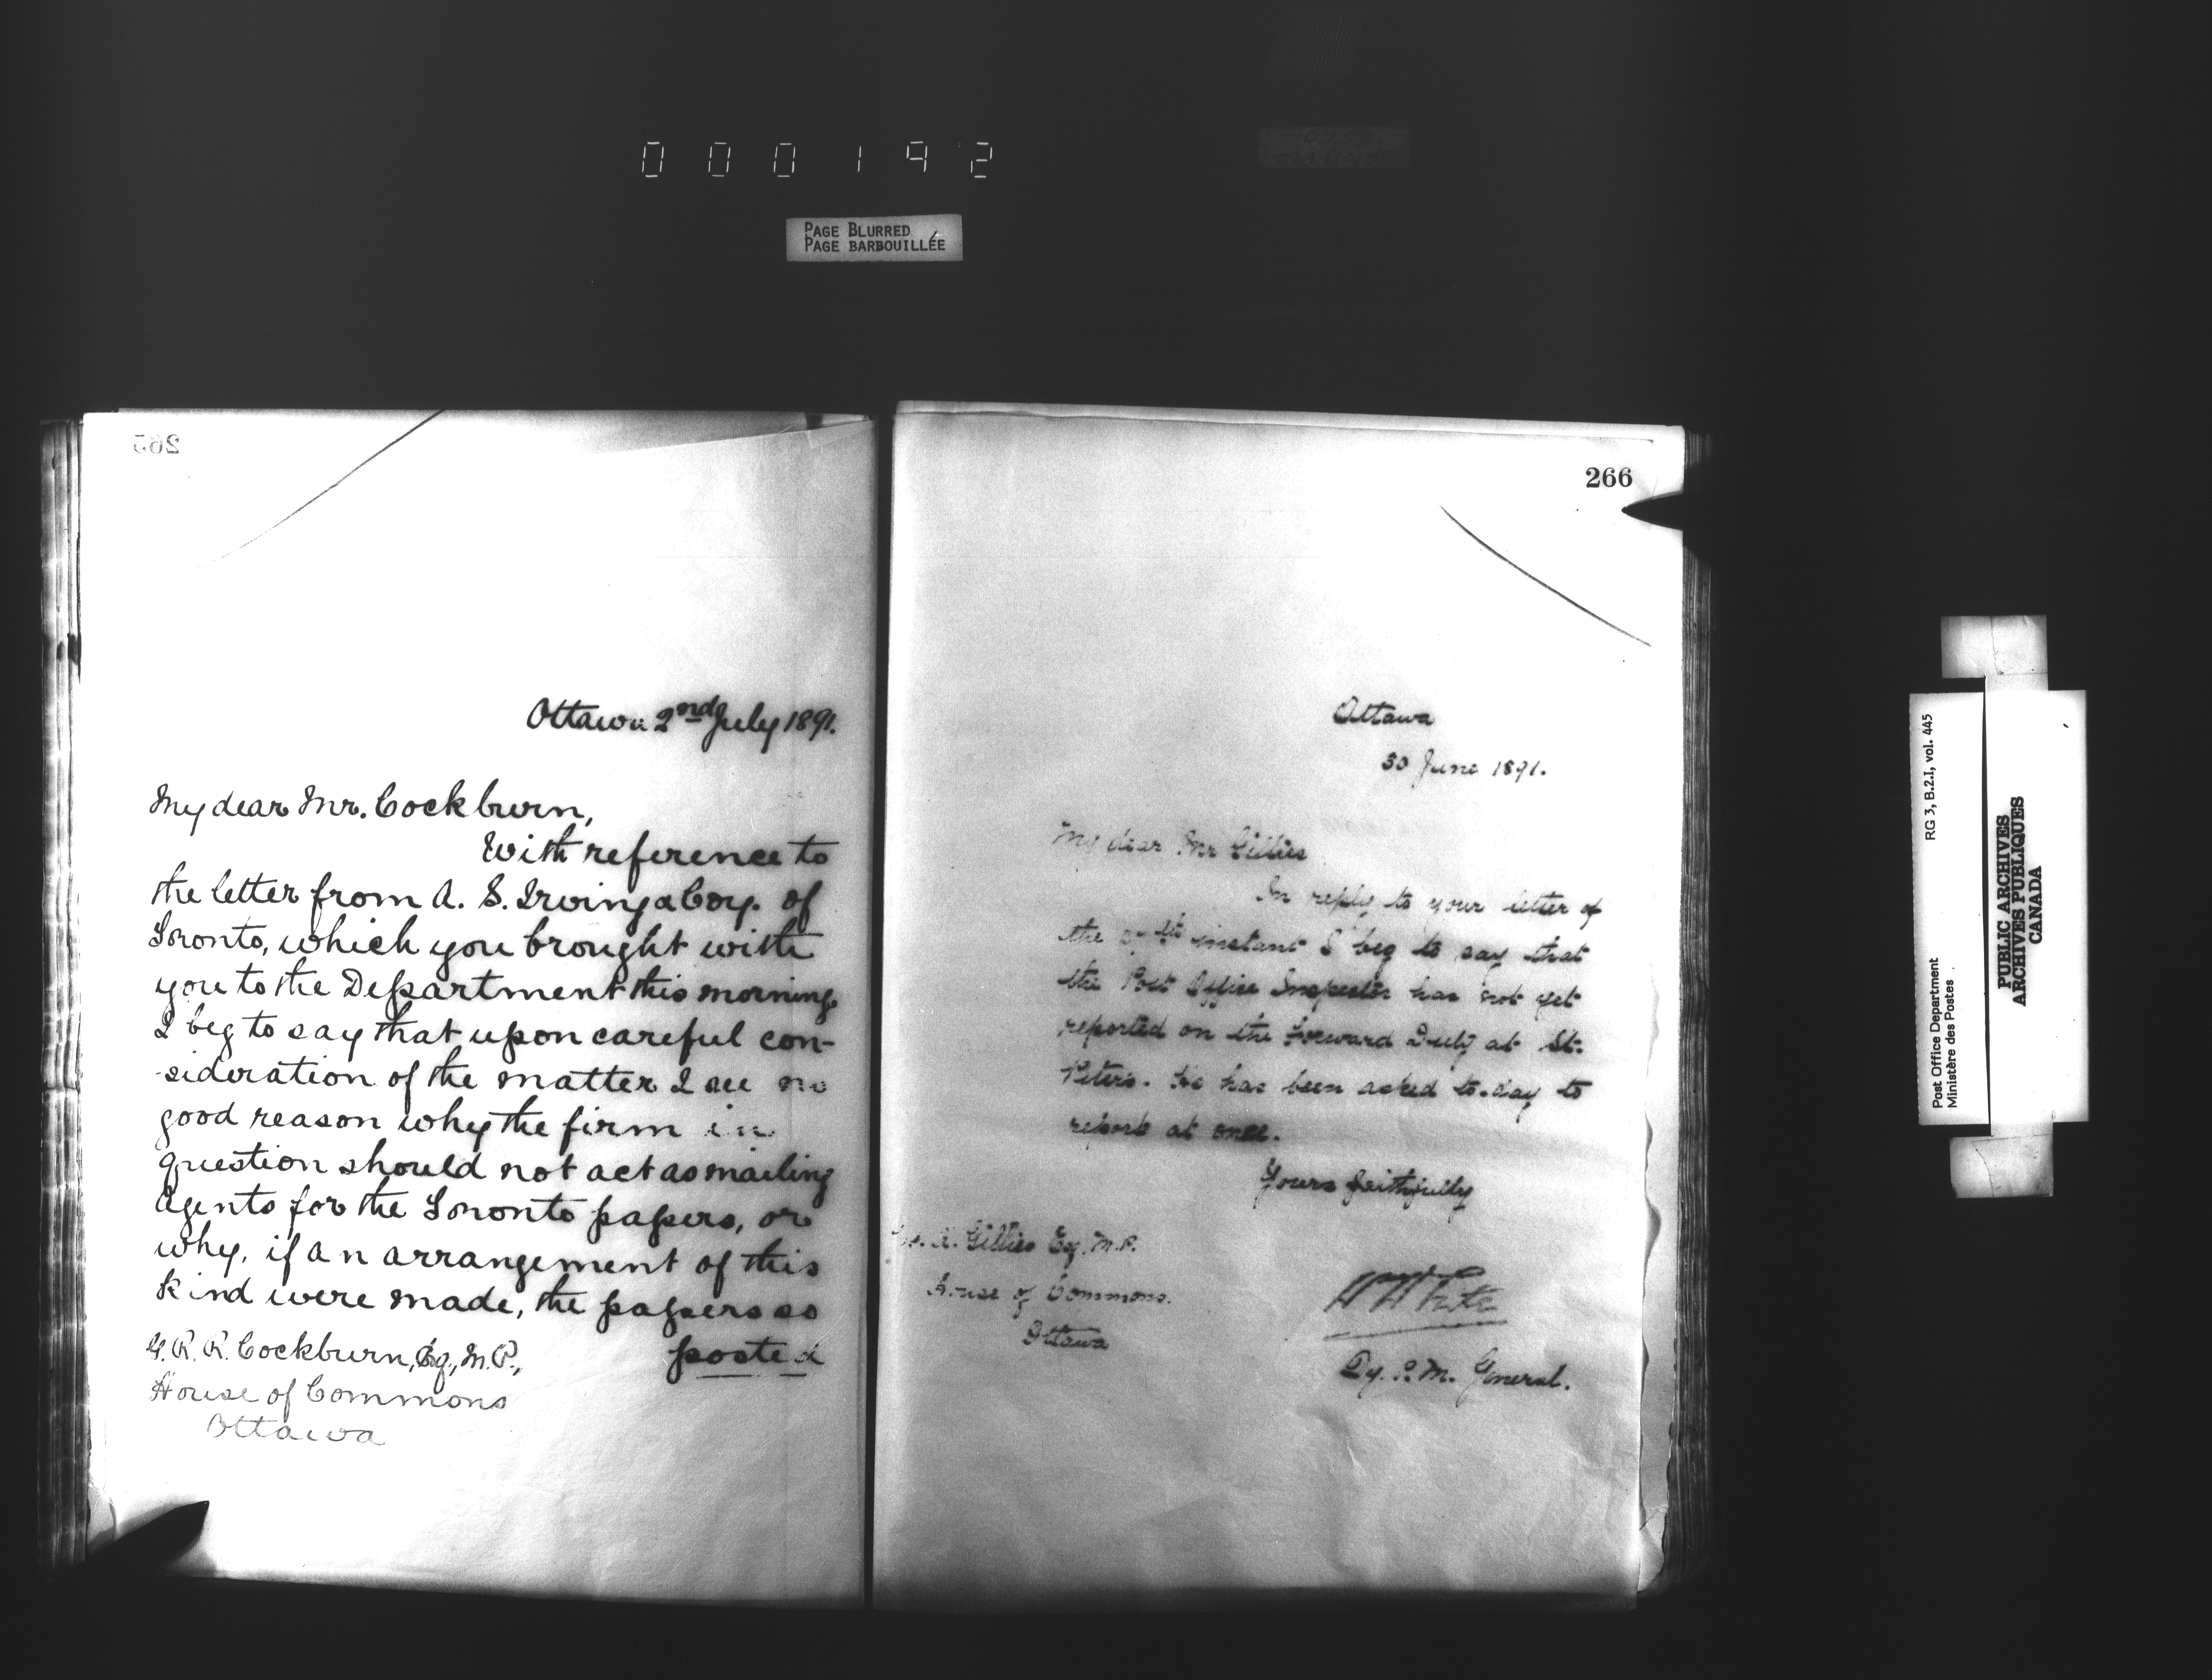 000192
PAGE BLURRED
PAGE BARBOUILLÉE
265
Ottawa 2nd July 1891.
My dear Mr. Cockburn,
With reference to
the letter from A. S. Irving & Coy. of
Toronto, which you brought with
you to the Department this morning,
I beg to say that upon careful con-
-sideration of the matter I see no
good reason why the firm in
question should not act as mailing
agents for the Toronto papers, or
why, if an arrangement of this
kind were made, the papers so
posted
G. R. R. Cockburn, Esq., M.P.,
House of Commons
Ottawa
266
Ottawa
30 June 1891.
My dear Mr Gillies
In reply to your letter of
the instant I beg to say that
the Post Office Inspector has not yet
reported on the Forward Duty at St.
Peter's. He has been asked to-day to
report at once.
Yours faithfully
Gillies Esq. M.P.
House of Commons.
Ottawa
W White
Dy. P. M. General.
RG 3, B.2.1, vol. 445
Post Office Department
Ministère des Postes
PUBLIC ARCHIVES
ARCHIVES PUBLIQUES
CANADA